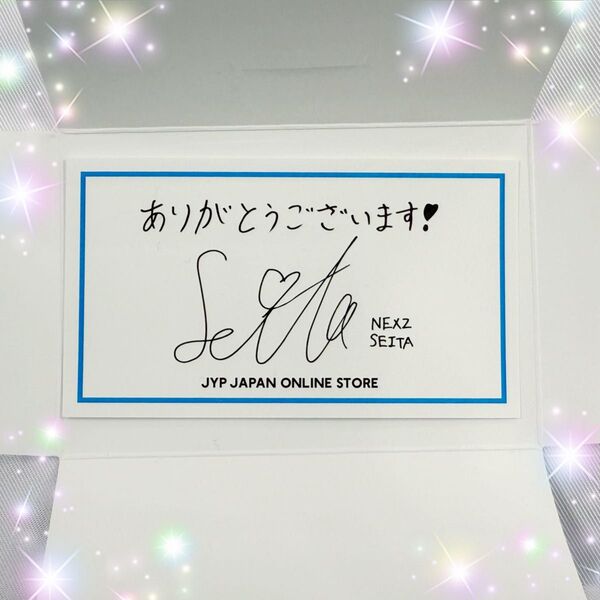 ありがとうございます!
Seita
NEXZ
SEITA
JYP JAPAN ONLINE STORE